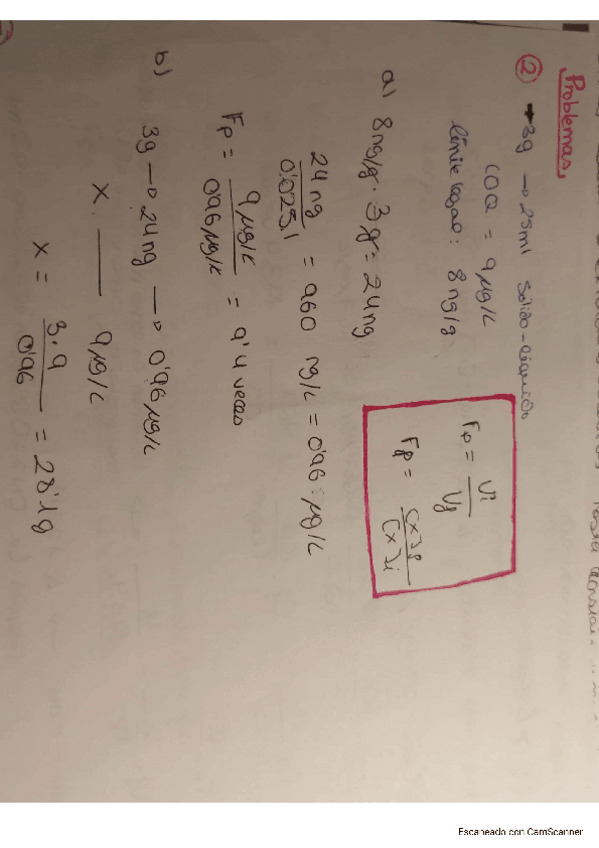 Problemas
② → 3g → 25ml sólido-líquido
LOQ = 9 µg/L
límite legal: 8 ng/g
Fp = Vi / Vf
Fp = [x]f / [x]i
a) 8ng/g · 3g = 24ng
24 ng / 0'025 l = 960 ng/L = 0'96 µg/L
Fp = 9 µg/L / 0'96 µg/L = 9'4 veces
b) 3g → 24ng → 0'96 µg/L
x. — 9 µg/L
x = 3·9 / 0'96 = 28'1g
Escaneado con CamScanner